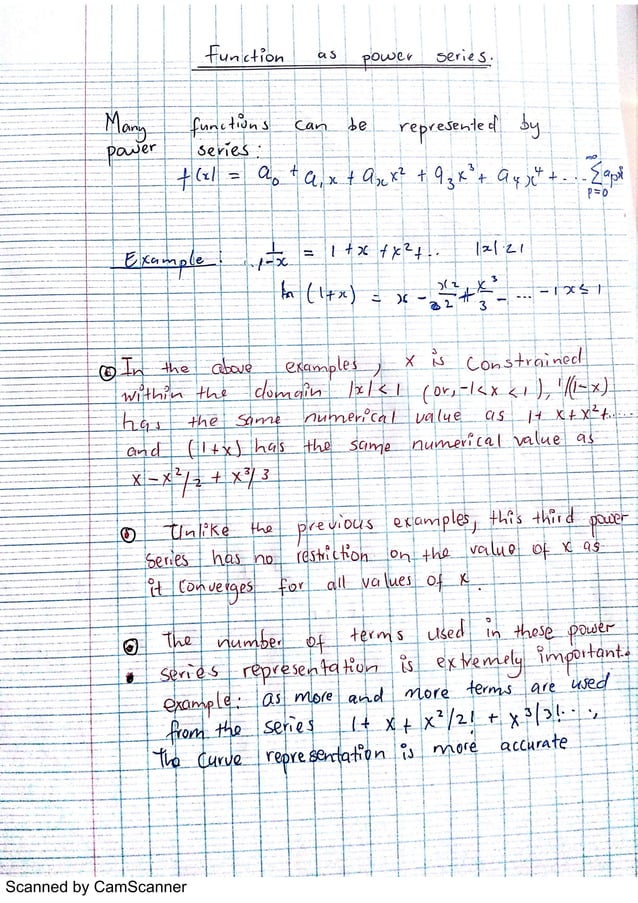 Function as power series.
Many functions can be represented by
power series:
f(x) = a₀ + a₁x + aₓx² + a₃x³ + a₄x⁴ + ... ∑
p=0
Example: 1/1-x = 1 + x + x² + .. |x| < 1
ln (1+x) = x - x²/2 + x³/3 - ... -1 x ≤ 1
In the above examples, x is constrained
within the domain |x| < 1 (or, -1 < x < 1), 1/(1-x)
has the same numerical value as 1 + x + x² + ......
and (1+x) has the same numerical value as
x - x²/2 + x³/3
Unlike the previous examples, this third power
series has no restriction on the value of x as
it converges for all values of x.
The number of terms used in those power
series representation is extremely important.
example: as more and more terms are used
from the series 1 + x + x²/2! + x³/3!...,
The curve representation is more accurate
Scanned by CamScanner